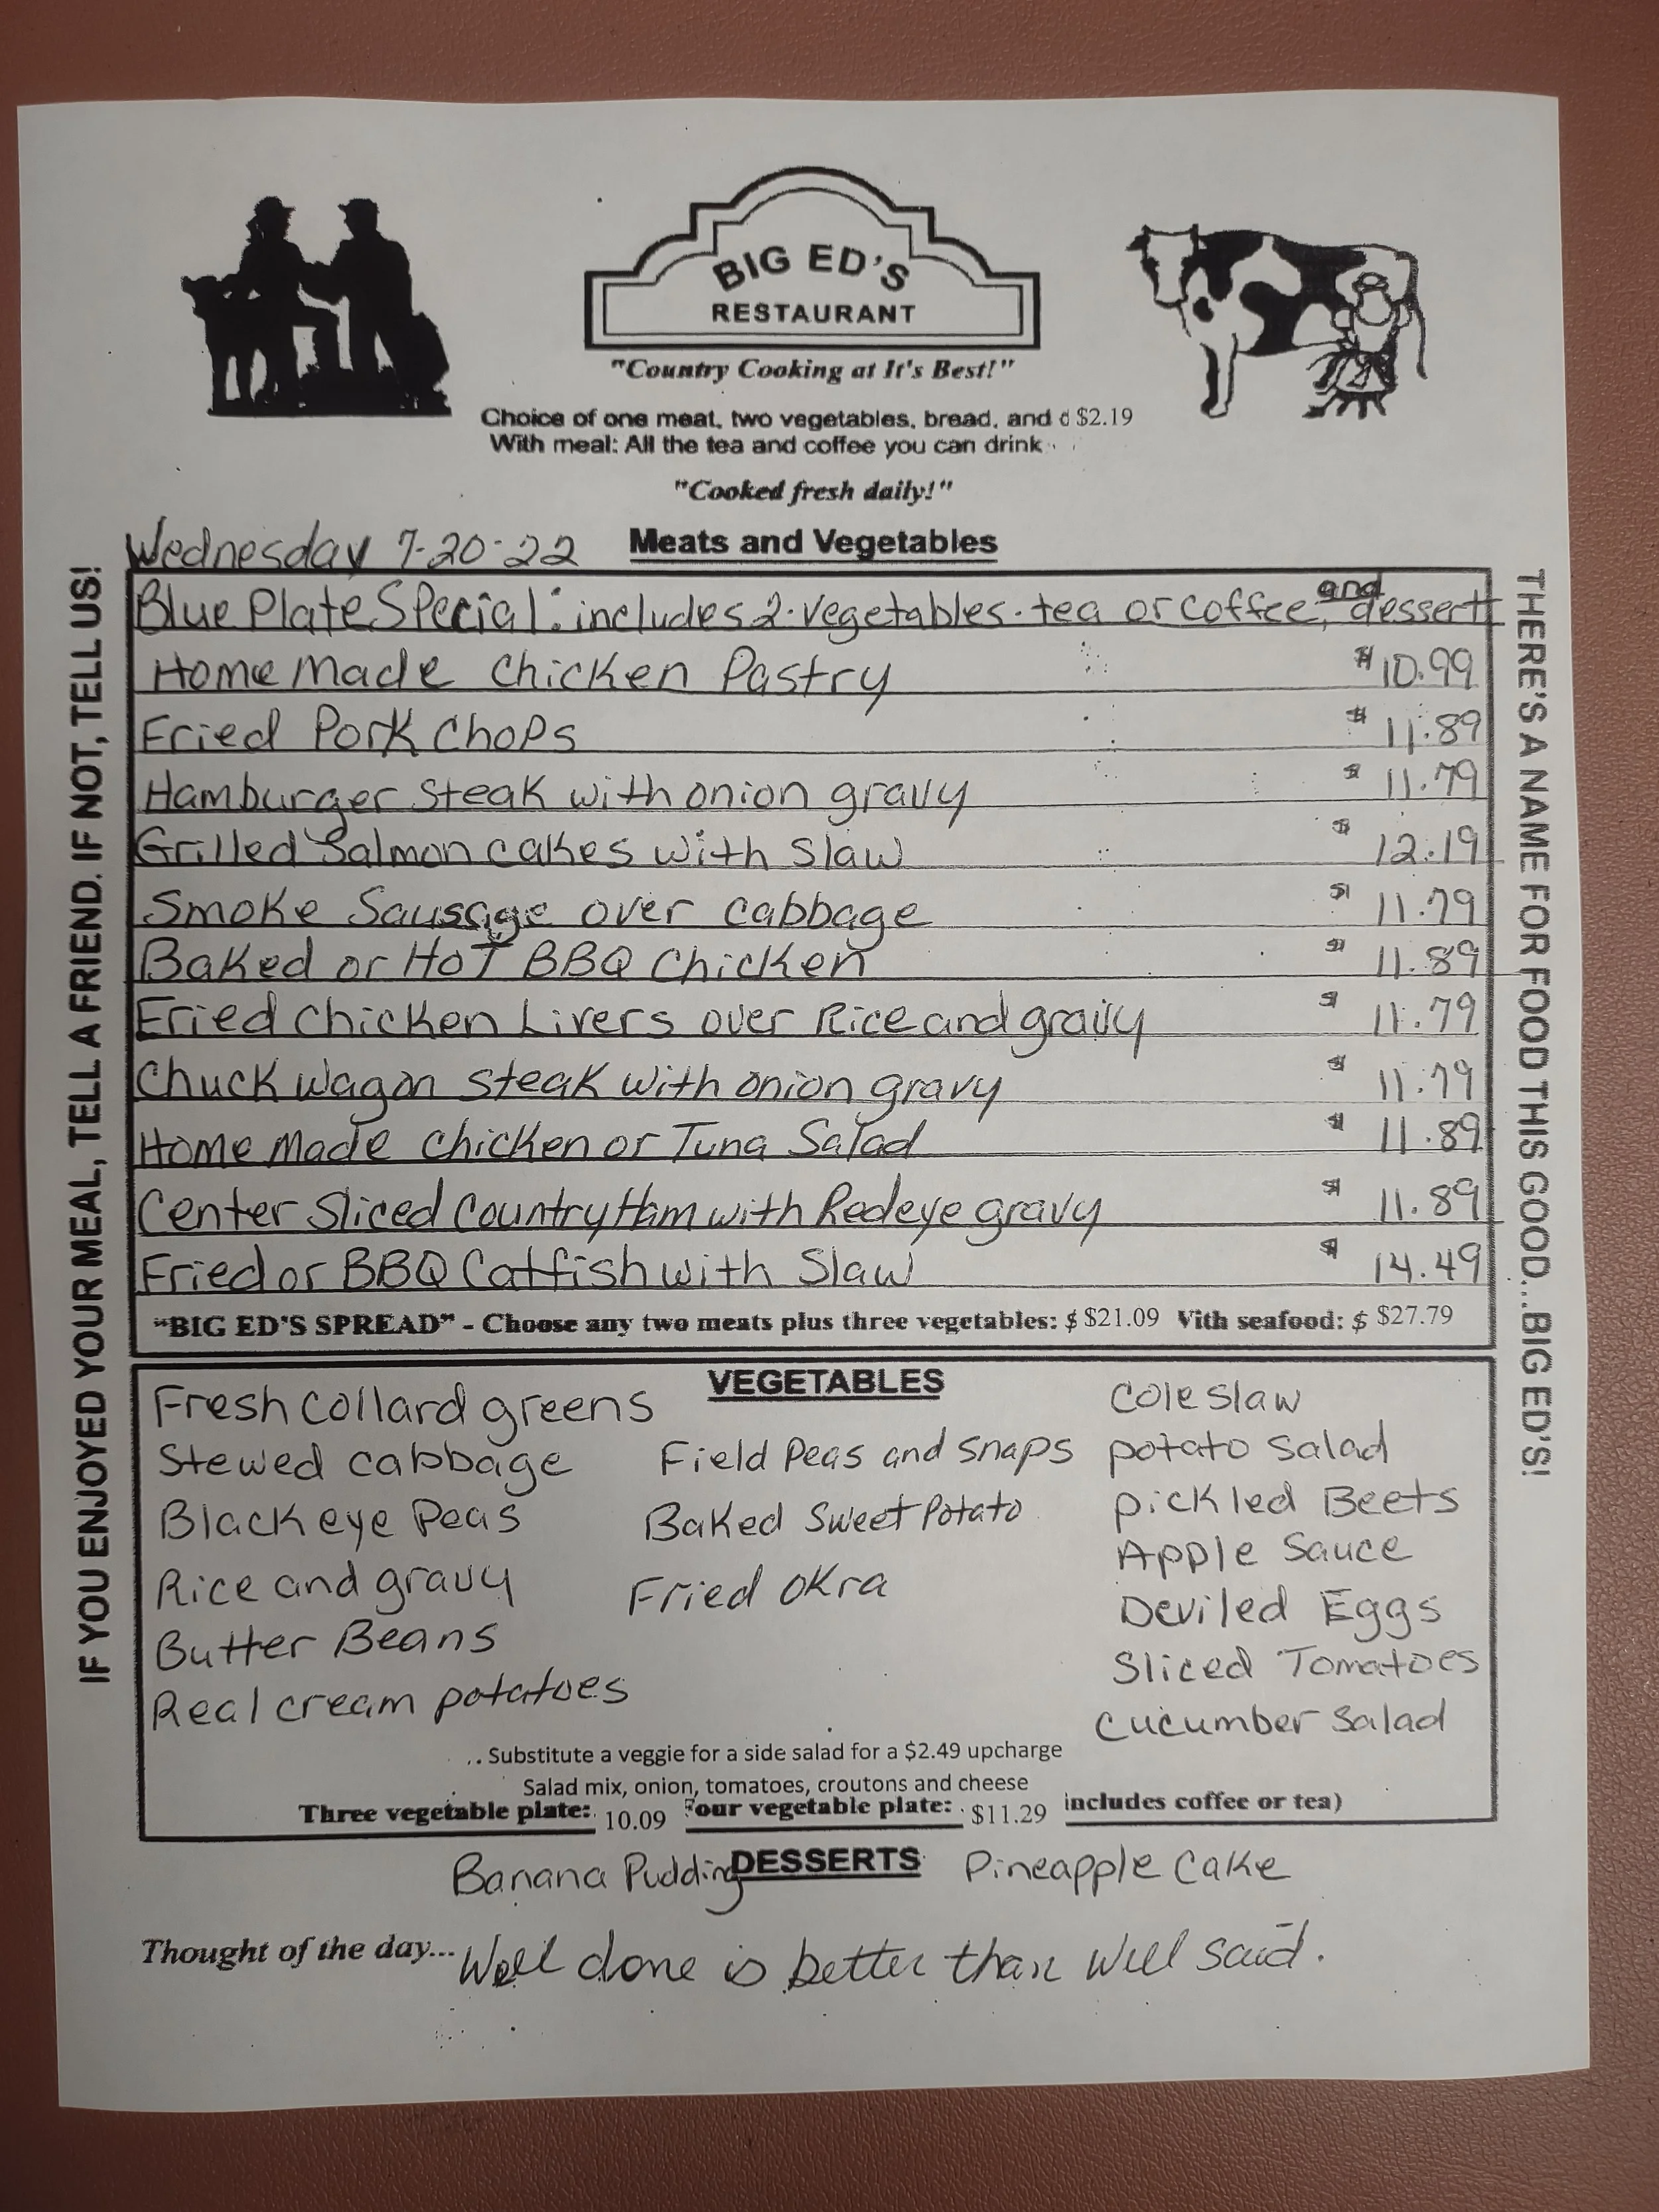 BIG ED'S
RESTAURANT
"Country Cooking at It's Best!"
Choice of one meat, two vegetables, bread, and d $2.19
With meal: All the tea and coffee you can drink
"Cooked fresh daily!"
Wednesday 7-20-22 Meats and Vegetables
Blue Plate Special: includes 2 vegetables. tea or coffee, and dessert
Home Made Chicken Pastry $10.99
Fried Pork Chops $ 11.89
Hamburger Steak with onion gravy $ 11.79
Grilled Salmon cakes with Slaw $ 12.19
Smoke Sausage over cabbage $ 11.79
Baked or HoT BBQ Chicken $ 11.89
Fried Chicken Livers over Rice and gravy $ 11.79
Chuck wagon steak with onion gravy $ 11.79
Home Made Chicken or Tuna Salad $ 11.89
Center Sliced Country Ham with Redeye gravy $ 11.89
Fried or BBQ Catfish with Slaw $ 14.49
"BIG ED'S SPREAD" - Choose any two meats plus three vegetables: $ $21.09 Vith seafood: $ $27.79
VEGETABLES
Fresh collard greens
Stewed cabbage
Black eye Peas
Rice and gravy
Butter Beans
Real cream potatoes
Field Peas and snaps
Baked Sweet Potato
Fried okra
Cole slaw
potato salad
pickled Beets
Apple Sauce
Deviled Eggs
Sliced Tomatoes
cucumber salad
.. Substitute a veggie for a side salad for a $2.49 upcharge
Salad mix, onion, tomatoes, croutons and cheese
Three vegetable plate: 10.09 Four vegetable plate: $11.29 includes coffee or tea)
Banana Pudding DESSERTS Pineapple Cake
Thought of the day... Well done is better than well said.
IF YOU ENJOYED YOUR MEAL, TELL A FRIEND. IF NOT, TELL US!
THERE'S A NAME FOR FOOD THIS GOOD...BIG ED'S!